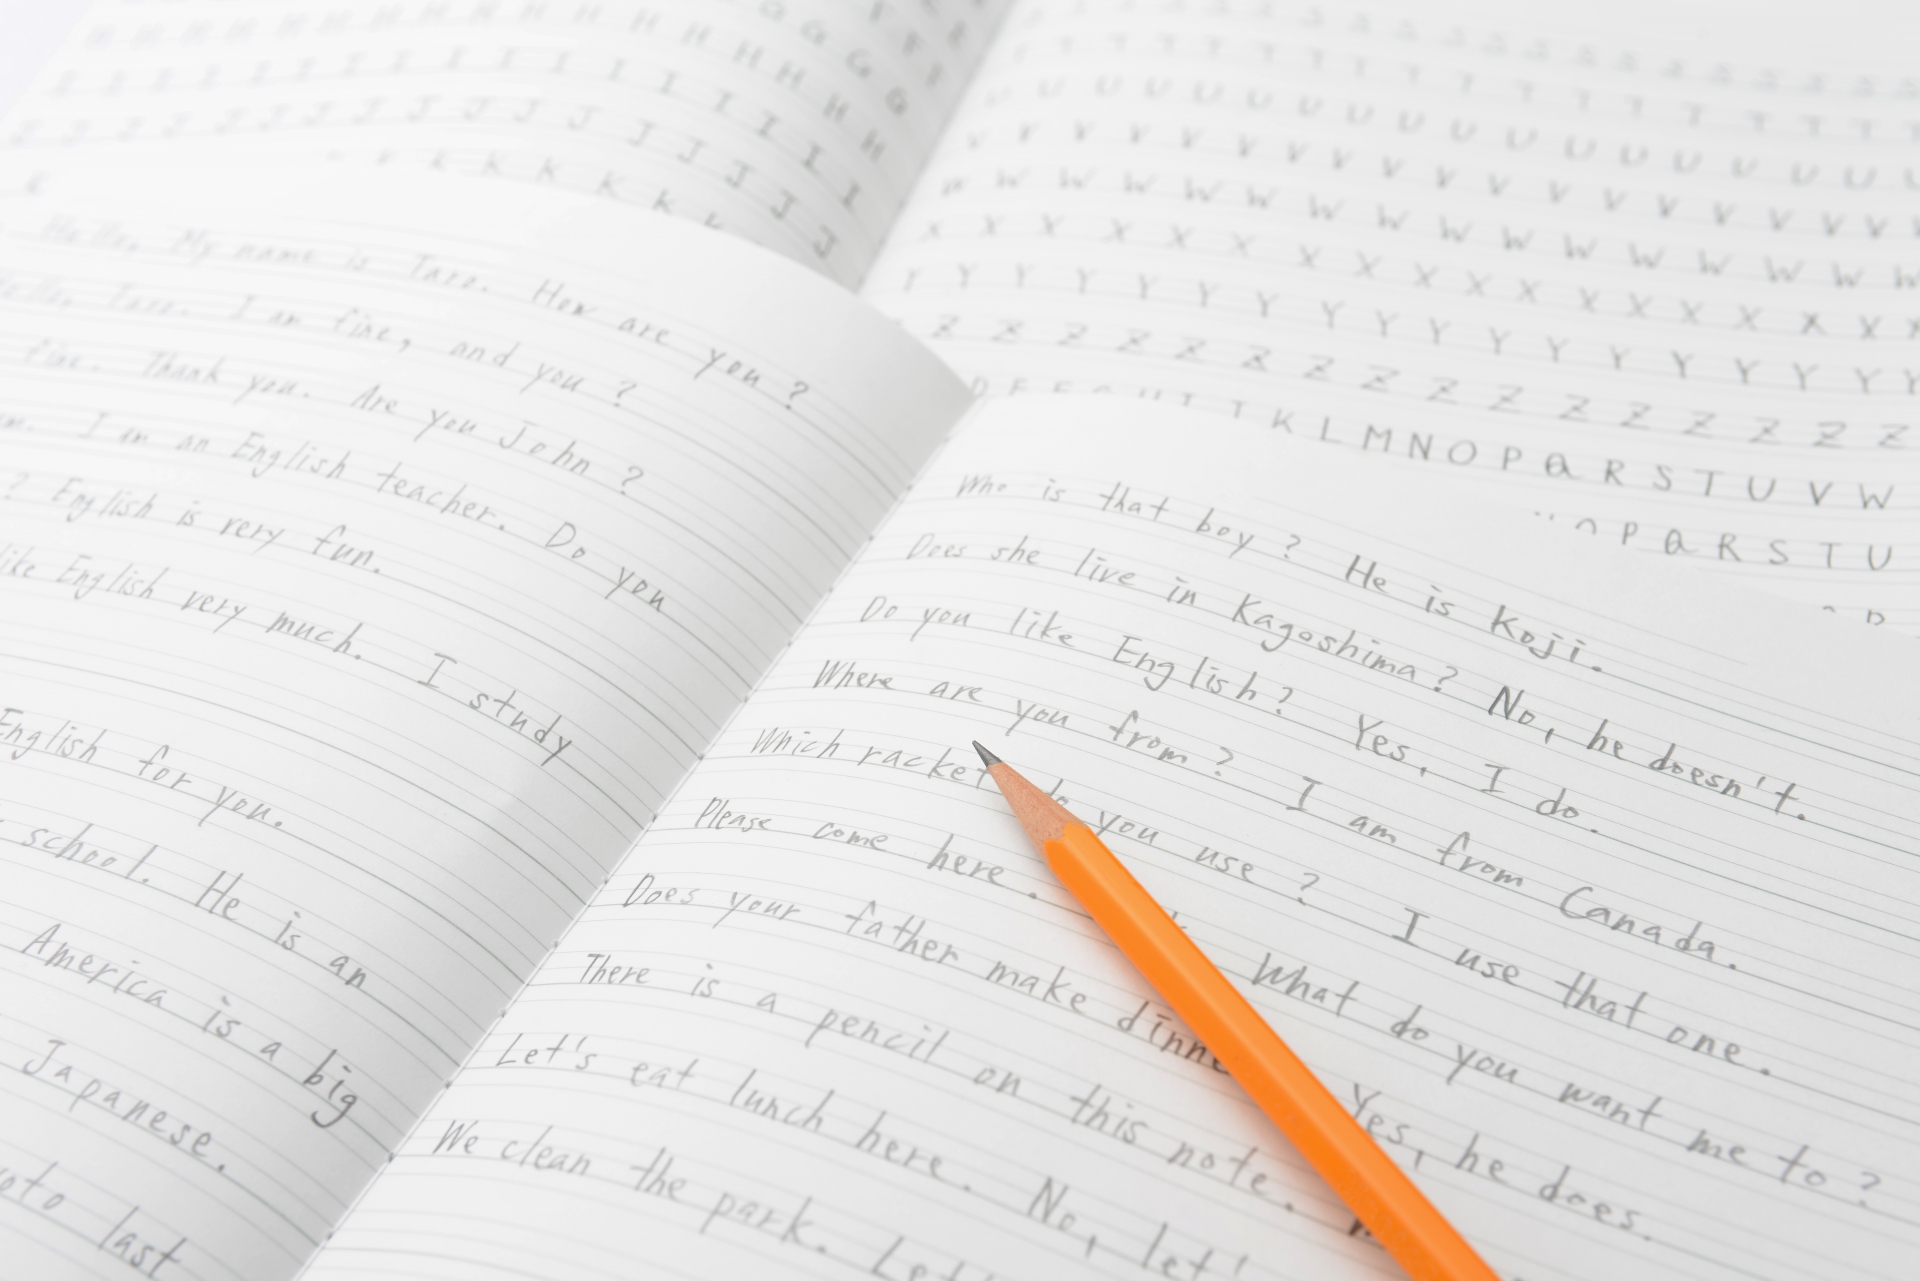 H H H H H H H H H H H H H
I I I I I I I I I I I I I I
J J J J J J J J J J J J J J
K K K K K K
Hello, My name is Taro. How are you?
Hello, Taro. I am fine, and you?
fine. Thank you. Are you John?
I am an English teacher. Do you
? English is very fun.
like English very much. I study
English for you.
school. He is an
America is a big
Japanese.
last
T T T T T T T T T T T T T T
U U U U U U U U U U U U U U U U
V V V V V V V V V V V V V V V V
W W W W W W W W W W W W W W W W
X X X X X X X X X X X X X X X X
Y Y Y Y Y Y Y Y Y Y Y Y Y Y Y Y
Z Z Z Z Z Z Z Z Z Z Z Z Z Z Z Z
K L M N O P Q R S T U V W
P Q R S T U
Who is that boy? He is Koji.
Does she live in Kagoshima? No, he doesn't.
Do you like English? Yes, I do.
Where are you from? I am from Canada.
Which racket do you use? I use that one.
Please come here. What do you want me to?
Does your father make dinne Yes, he does.
There is a pencil on this note.
Let's eat lunch here. No, let'
We clean the park. Let'